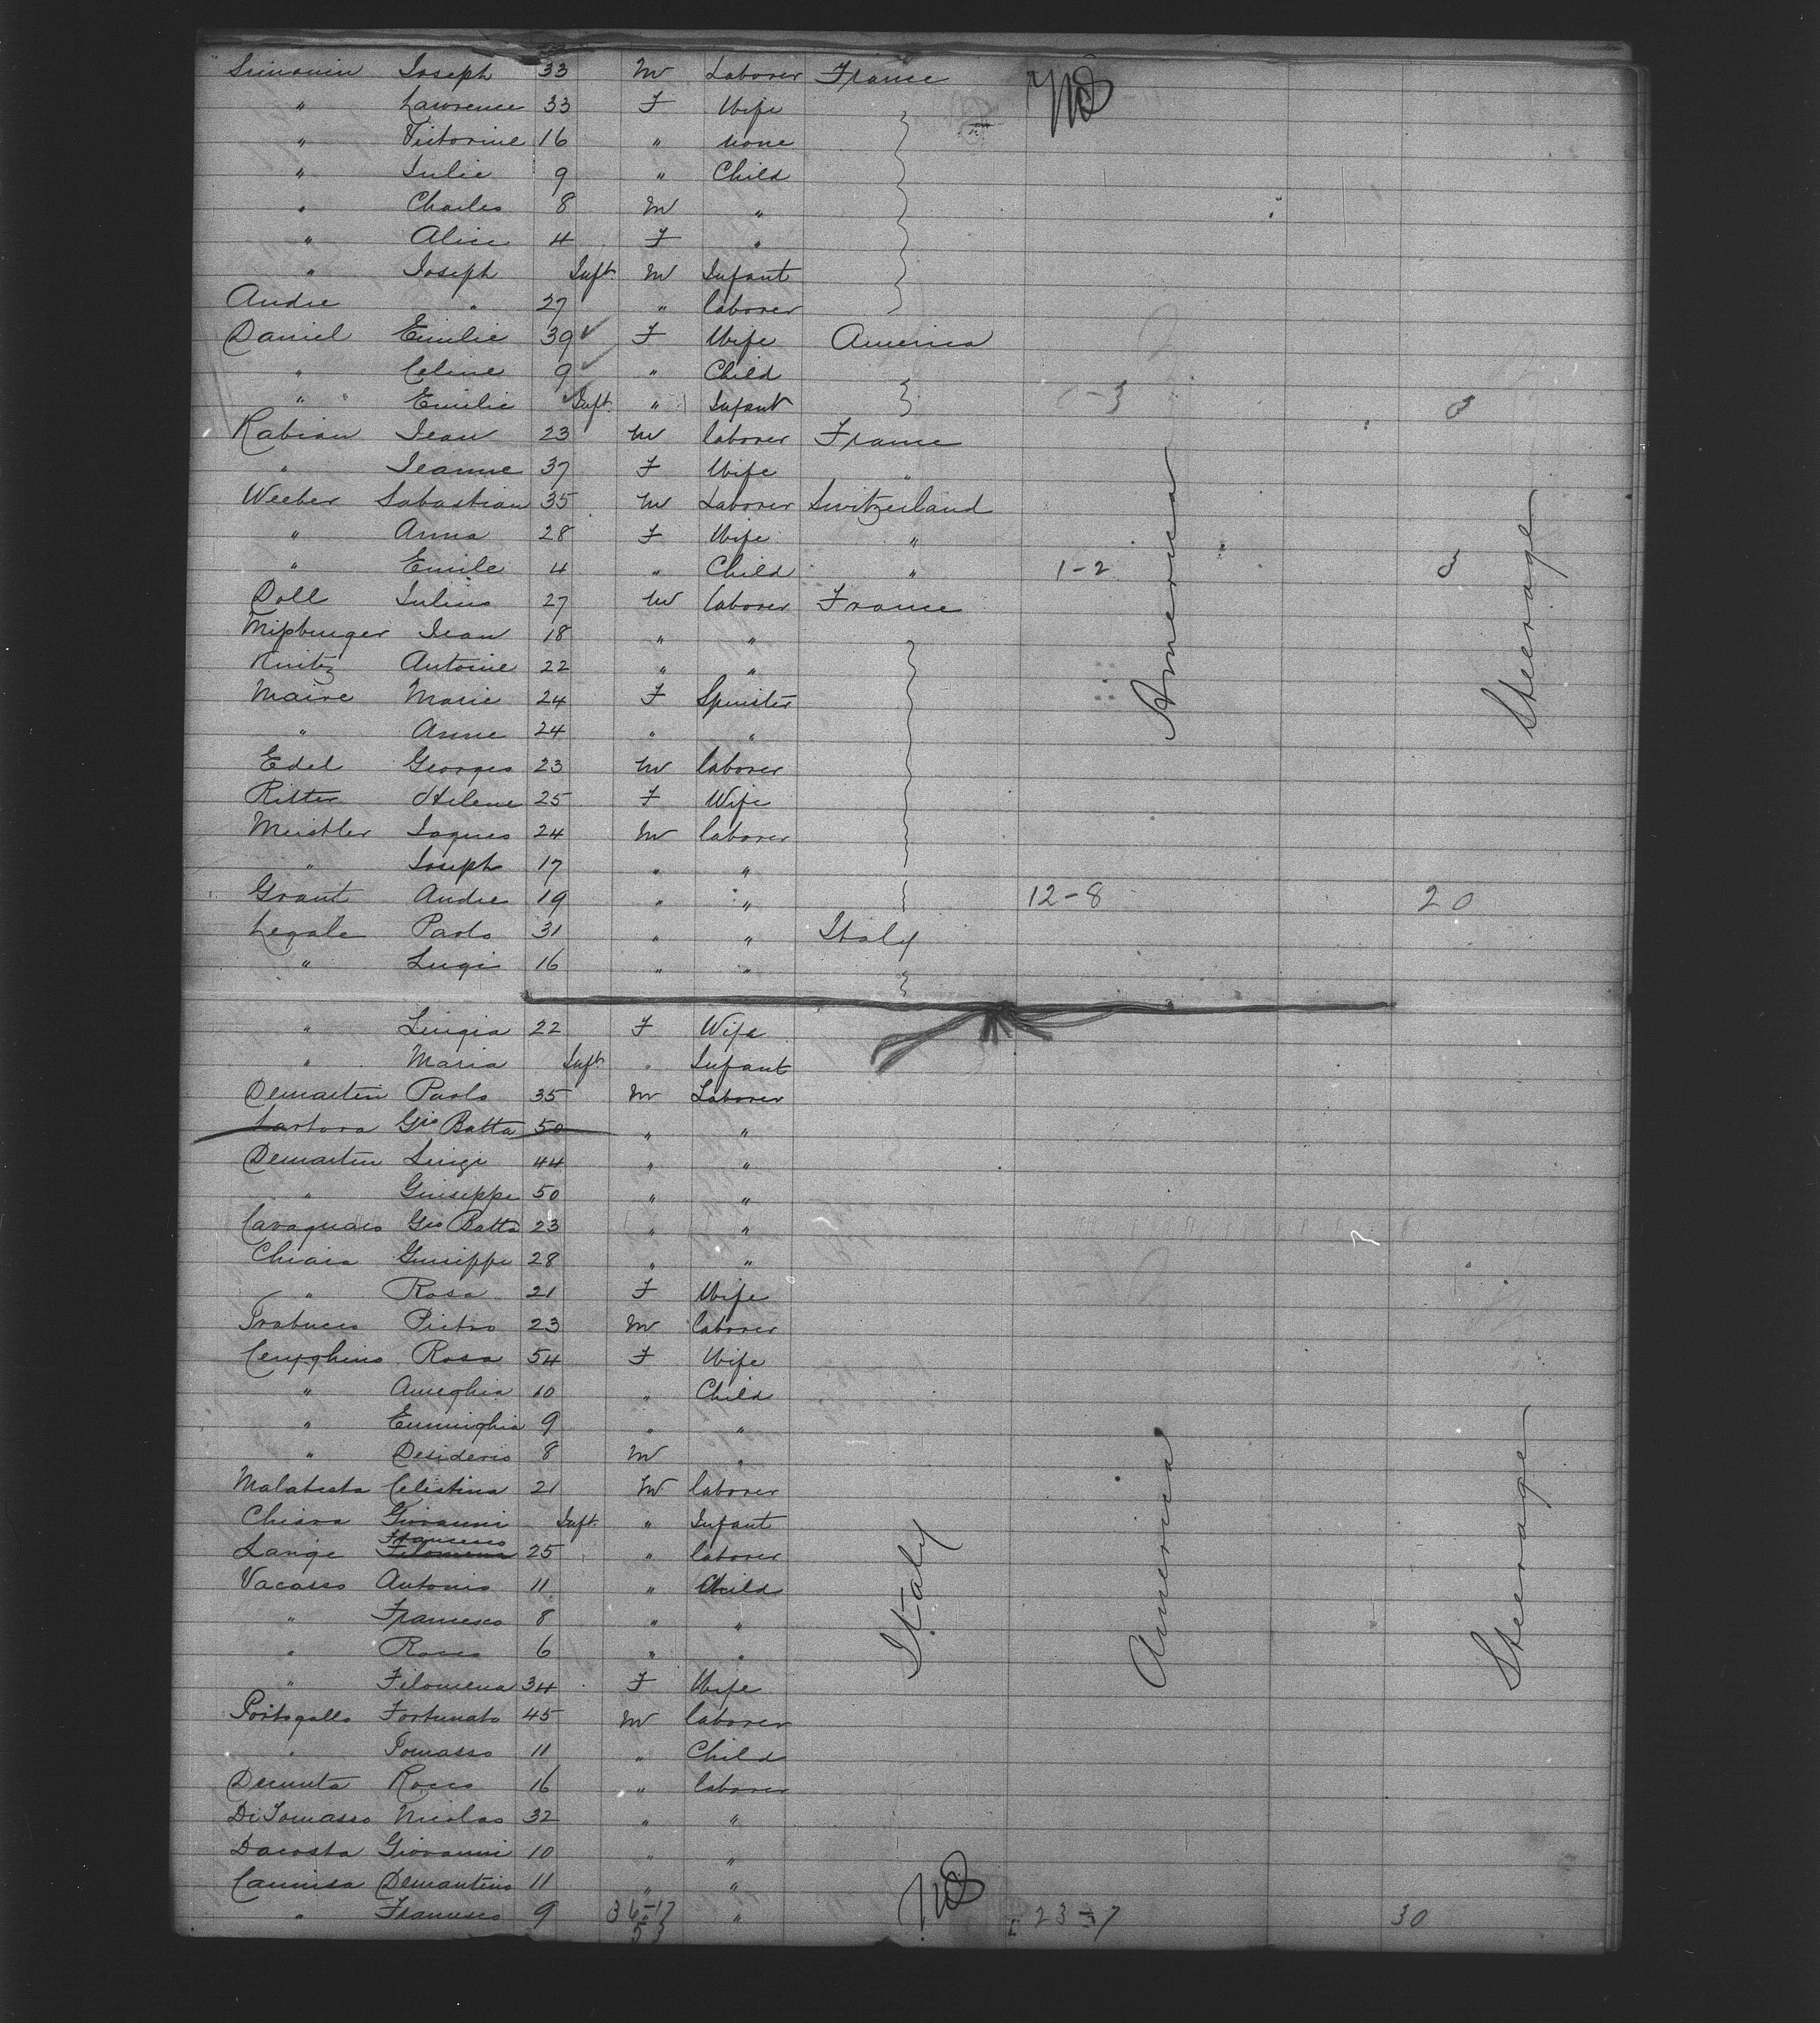 Simonin Joseph 33 M Laborer France
" Lawrence 33 F Wife
" Victorine 16 " none
" Julie 9 " Child
" Charles 8 M "
" Alice 4 F "
" Joseph Inft. M Infant
Andre " 27 " laborer
Daniel Emilie 39 F Wife America
" Celine 9 " Child
" Emilie Inft. " Infant 0-3 3
Rabian Jean 23 M laborer France
" Jeanne 37 F Wife "
Weeber Sabastian 35 M Laborer Switzerland
" Anna 28 F Wife "
" Emile 4 " Child " 1-2 3
Doll Julius 27 M laborer France
Jean 18 " "
Antoine 22 " "
Maire Marie 24 F Spinster
" Anne 24 " "
Edel Georges 23 M laborer
Ritter Helene 25 F Wife
Meistler Jaques 24 M laborer
" Joseph 17 " "
Grant Andre 19 " " 12-8 20
Legale Paolo 31 " " Italy
" Lugi 16 " "
America
Steerage
" Luigia 22 F Wife
" Maria Inft. " Infant
Demartin Paolo 35 M Laborer
Lartora Gio Batta 50 " "
Demartin Luigi 44 " "
" Giuseppe 50 " "
Cavagnaro Gio Batta 23 " "
Chiara Giuseppe 28 " "
" Rosa 21 F Wife
Trabucco Pietro 23 M laborer
Rosa 54 F Wife
" Ameghia 10 " Child
" Ermighia 9 " "
" Desiderio 8 M "
Malatesta Celestina 21 M laborer
Chiara Giovanni Inft. " Infant
Francesco
Lange Filomena 25 " laborer
Vacasso Antonio 11 " Child
" Francesco 8 " "
" Rocco 6 " "
" Filomena 34 F Wife
Portogallo Fortunato 45 M laborer
" Tomasso 11 " Child
Rocco 16 " laborer
DiTomasso Nicolas 32 " "
Dacosta Giovanni 10 " "
Camisa Demantino 11 " "
" Francesco 9 36-17 " 23-7 30
53
Italy
America
Steerage